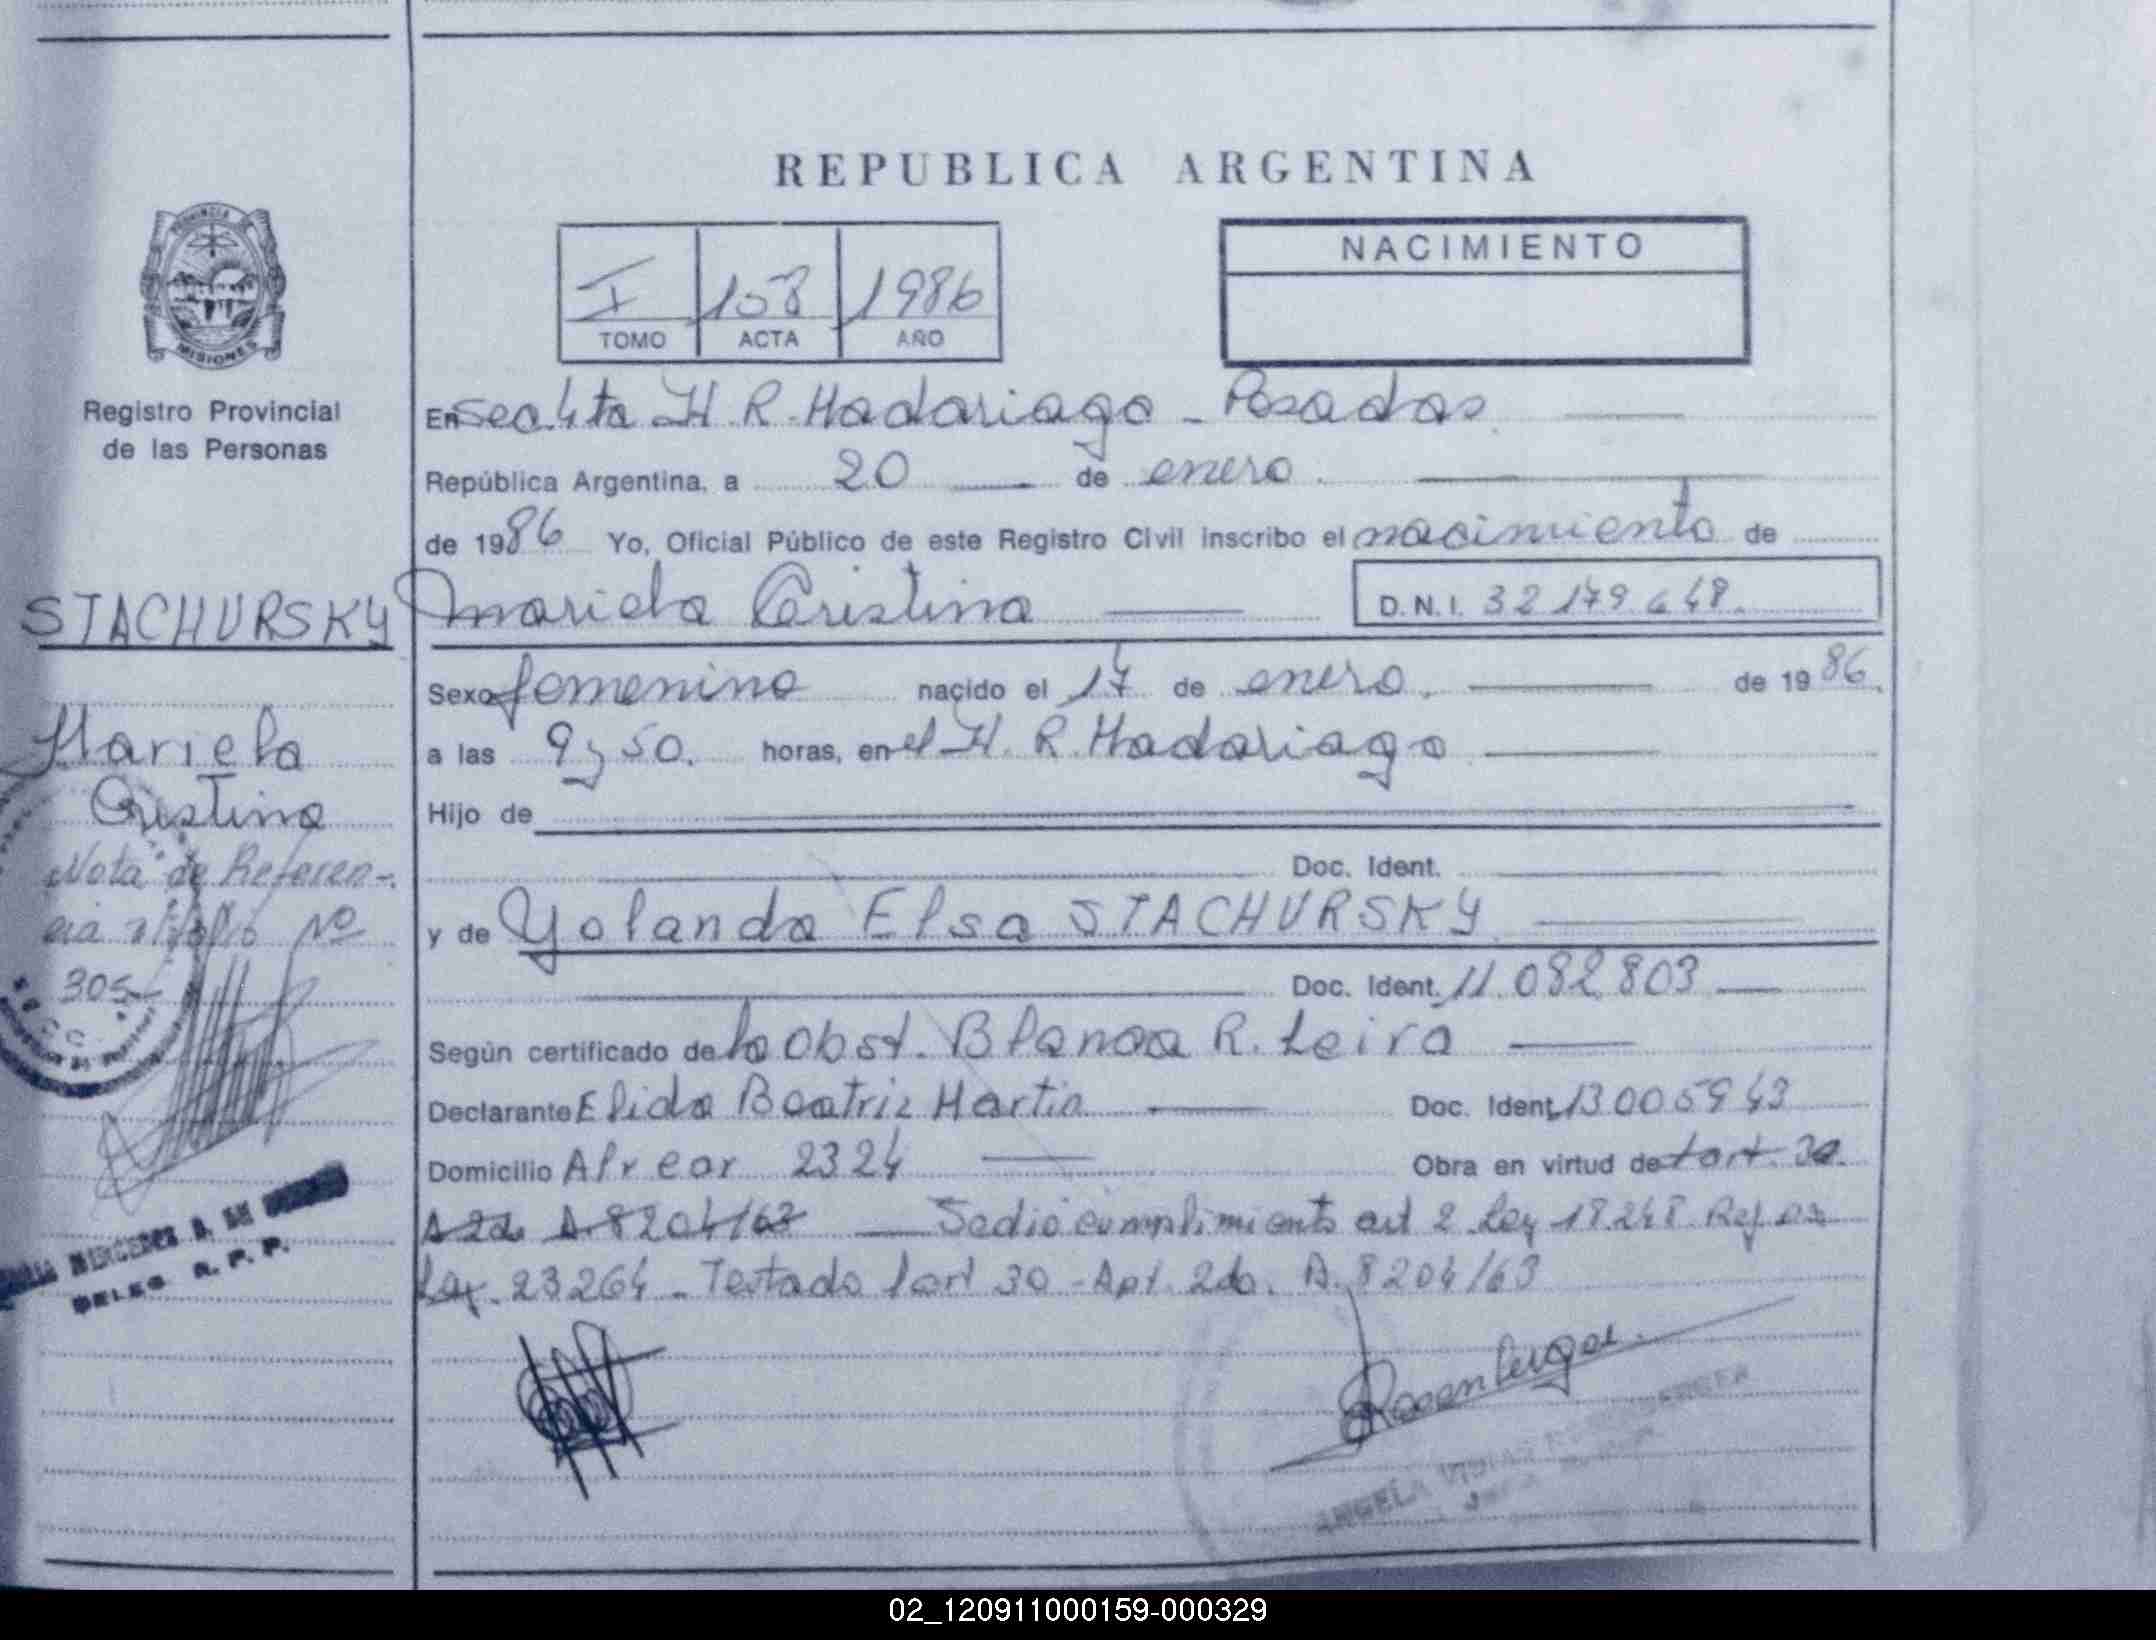 REPUBLICA ARGENTINA
PROVINCIA
MISIONES
Registro Provincial
de las Personas
I 158 1986
TOMO ACTA AÑO
NACIMIENTO
En Secc. 4ta H. R. Madariaga - Posadas
República Argentina, a 20 de enero.
de 1986 Yo, Oficial Público de este Registro Civil inscribo el nacimiento de
STACHURSKY
Mariela Cristina
D.N.I. 32 179 648.
Sexo femenino nacido el 17 de enero. de 1986.
Mariela
Cristina
a las 9 y 50. horas, en el H. R. Madariaga
Hijo de
Nota de Referen-
cia Nº
305
Doc. Ident.
y de Yolanda Elsa STACHURSKY
Doc. Ident. 11.082.803
Según certificado de la Obst. Blanca R. Leiva
Declarante Elida Beatriz Martin Doc. Ident. 13005943
Domicilio Alvear 2324 Obra en virtud de l'art. 30.
A 2do D. 8204/63 Se dio cumplimiento art 2 Ley 18.248 Ref. por
Ley. 23264 - Testado l'art 30 - Apt. 2do. D. 8204/63
DELEG R. P. P.
Rosenberger
ANGELA
02_120911000159-000329